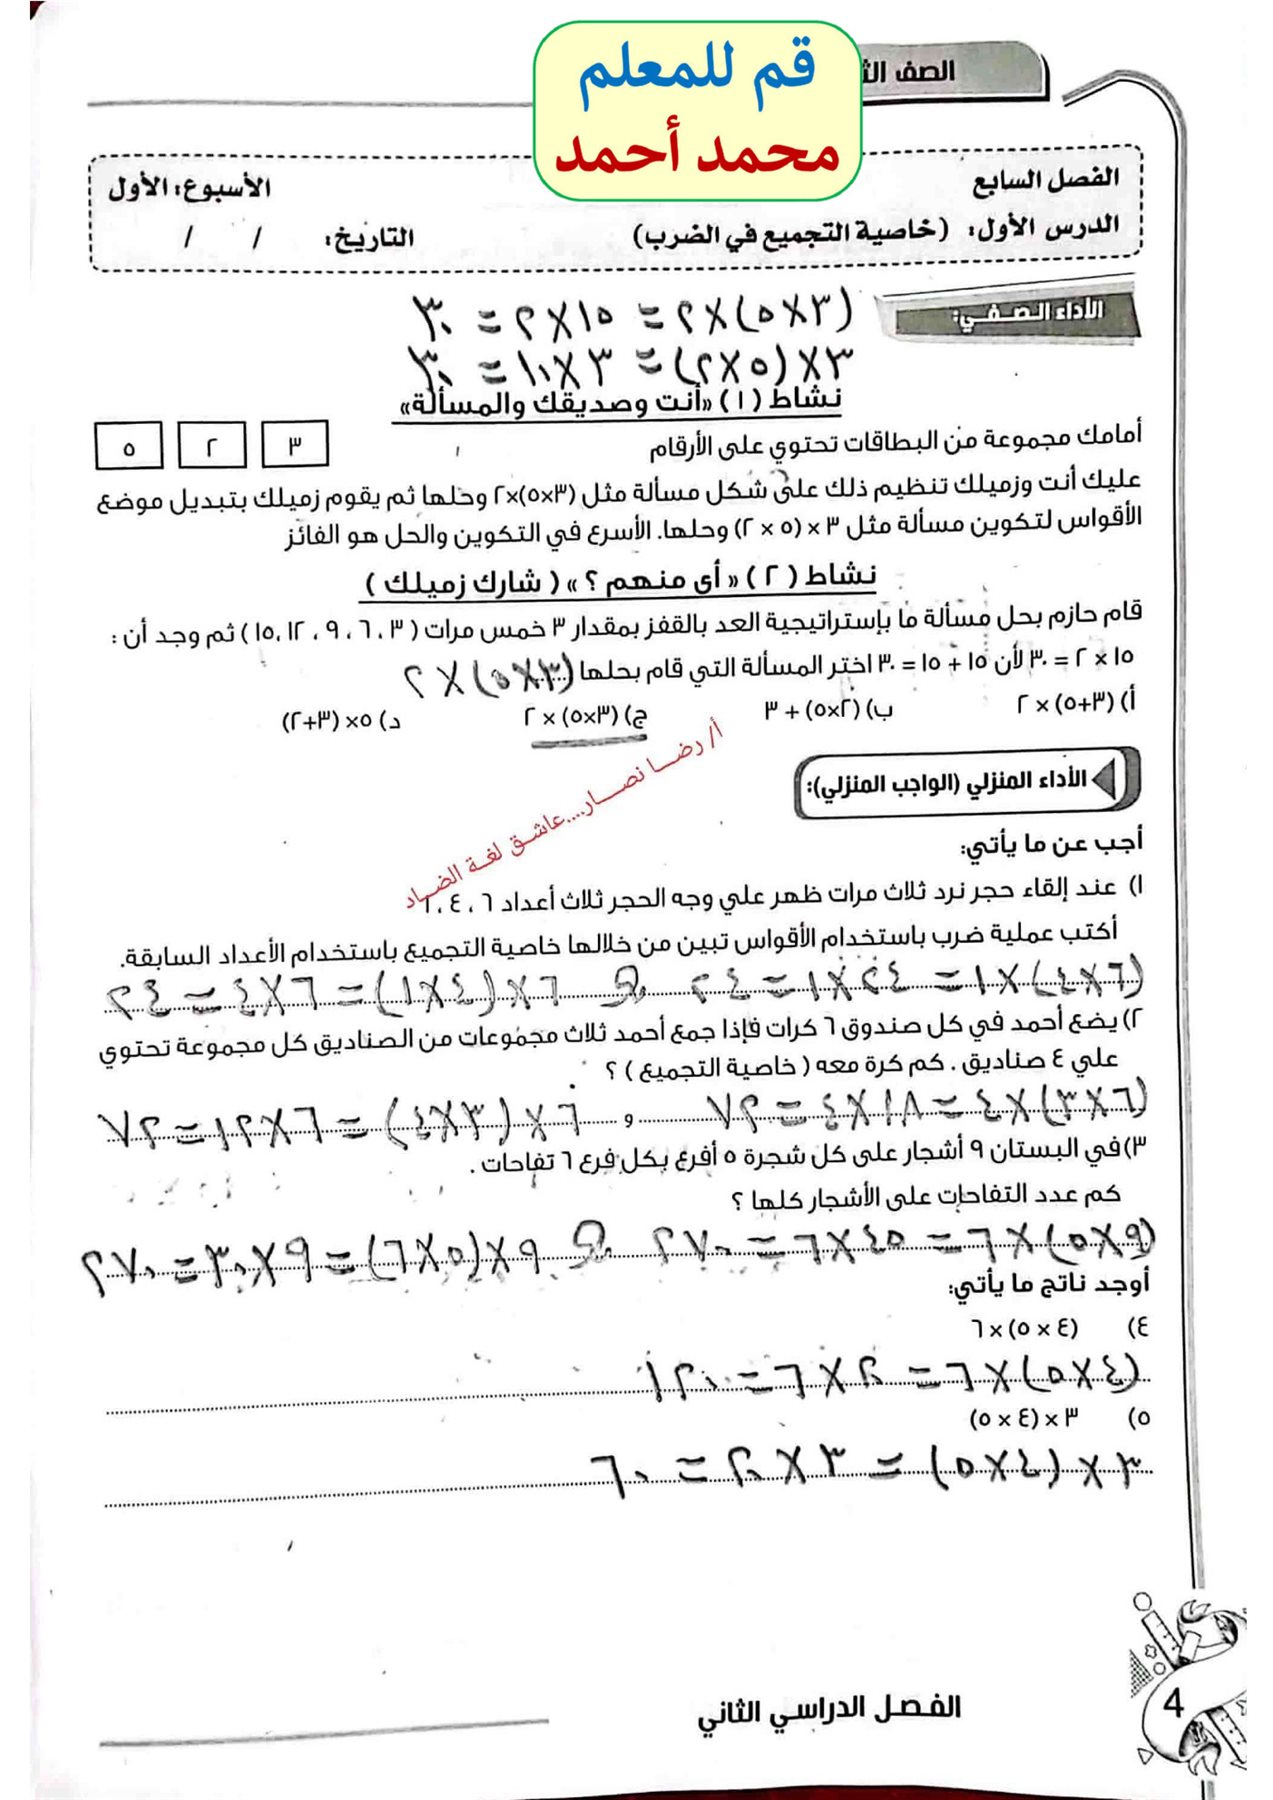 قم للمعلم
محمد أحمد
الصف الث
الفصل السابع
الأسبوع: الأول
الدرس الأول: (خاصية التجميع في الضرب)
التاريخ: / /
الأداء الصفي:
(٣×٥)×٢ = ١٥×٢ = ٣٠
٣×(٥×٢) = ٣×١٠ = ٣٠
نشاط (١) «أنت وصديقك والمسألة»
أمامك مجموعة من البطاقات تحتوي على الأرقام ٣ ٢ ٥
عليك أنت وزميلك تنظيم ذلك على شكل مسألة مثل (٣×٥)×٢ وحلها ثم يقوم زميلك بتبديل موضع
الأقواس لتكوين مسألة مثل ٣ × (٥ × ٢) وحلها. الأسرع في التكوين والحل هو الفائز
نشاط (٢) «أي منهم ؟» (شارك زميلك)
قام حازم بحل مسألة ما بإستراتيجية العد بالقفز بمقدار ٣ خمس مرات (٣ ، ٦ ، ٩ ، ١٢ ،١٥) ثم وجد أن :
١٥ × ٢ = ٣٠ لأن ١٥ + ١٥ = ٣٠ اختر المسألة التي قام بحلها (٣×٥) × ٢
أ) (٣+٥) × ٢ ب) (٢×٥) + ٣ ج) (٣×٥) × ٢ د) ٥× (٣+٢)
أ/ رضا نصار....عاشق لغة الضاد
الأداء المنزلي (الواجب المنزلي):
أجب عن ما يأتي:
١) عند إلقاء حجر نرد ثلاث مرات ظهر علي وجه الحجر ثلاث أعداد ٦ ، ٤ ، ١
أكتب عملية ضرب باستخدام الأقواس تبين من خلالها خاصية التجميع باستخدام الأعداد السابقة.
(٦×٤)×١ = ٢٤×١ = ٢٤ و ٦×(٤×١) = ٦×٤ = ٢٤
٢) يضع أحمد في كل صندوق ٦ كرات فإذا جمع أحمد ثلاث مجموعات من الصناديق كل مجموعة تحتوي
علي ٤ صناديق . كم كرة معه (خاصية التجميع) ؟
(٦×٣)×٤ = ١٨×٤ = ٧٢ و ٦×(٣×٤) = ٦×١٢ = ٧٢
٣) في البستان ٩ أشجار على كل شجرة ٥ أفرع بكل فرع ٦ تفاحات .
كم عدد التفاحات على الأشجار كلها ؟
(٩×٥)×٦ = ٤٥×٦ = ٢٧٠ و ٩×(٥×٦) = ٩×٣٠ = ٢٧٠
أوجد ناتج ما يأتي:
٤) (٤ × ٥)×٦
(٤×٥)×٦ = ٢٠×٦ = ١٢٠
٥) ٣ × (٤ × ٥)
٣×(٤×٥) = ٣×٢٠ = ٦٠
الفصل الدراسي الثاني
4